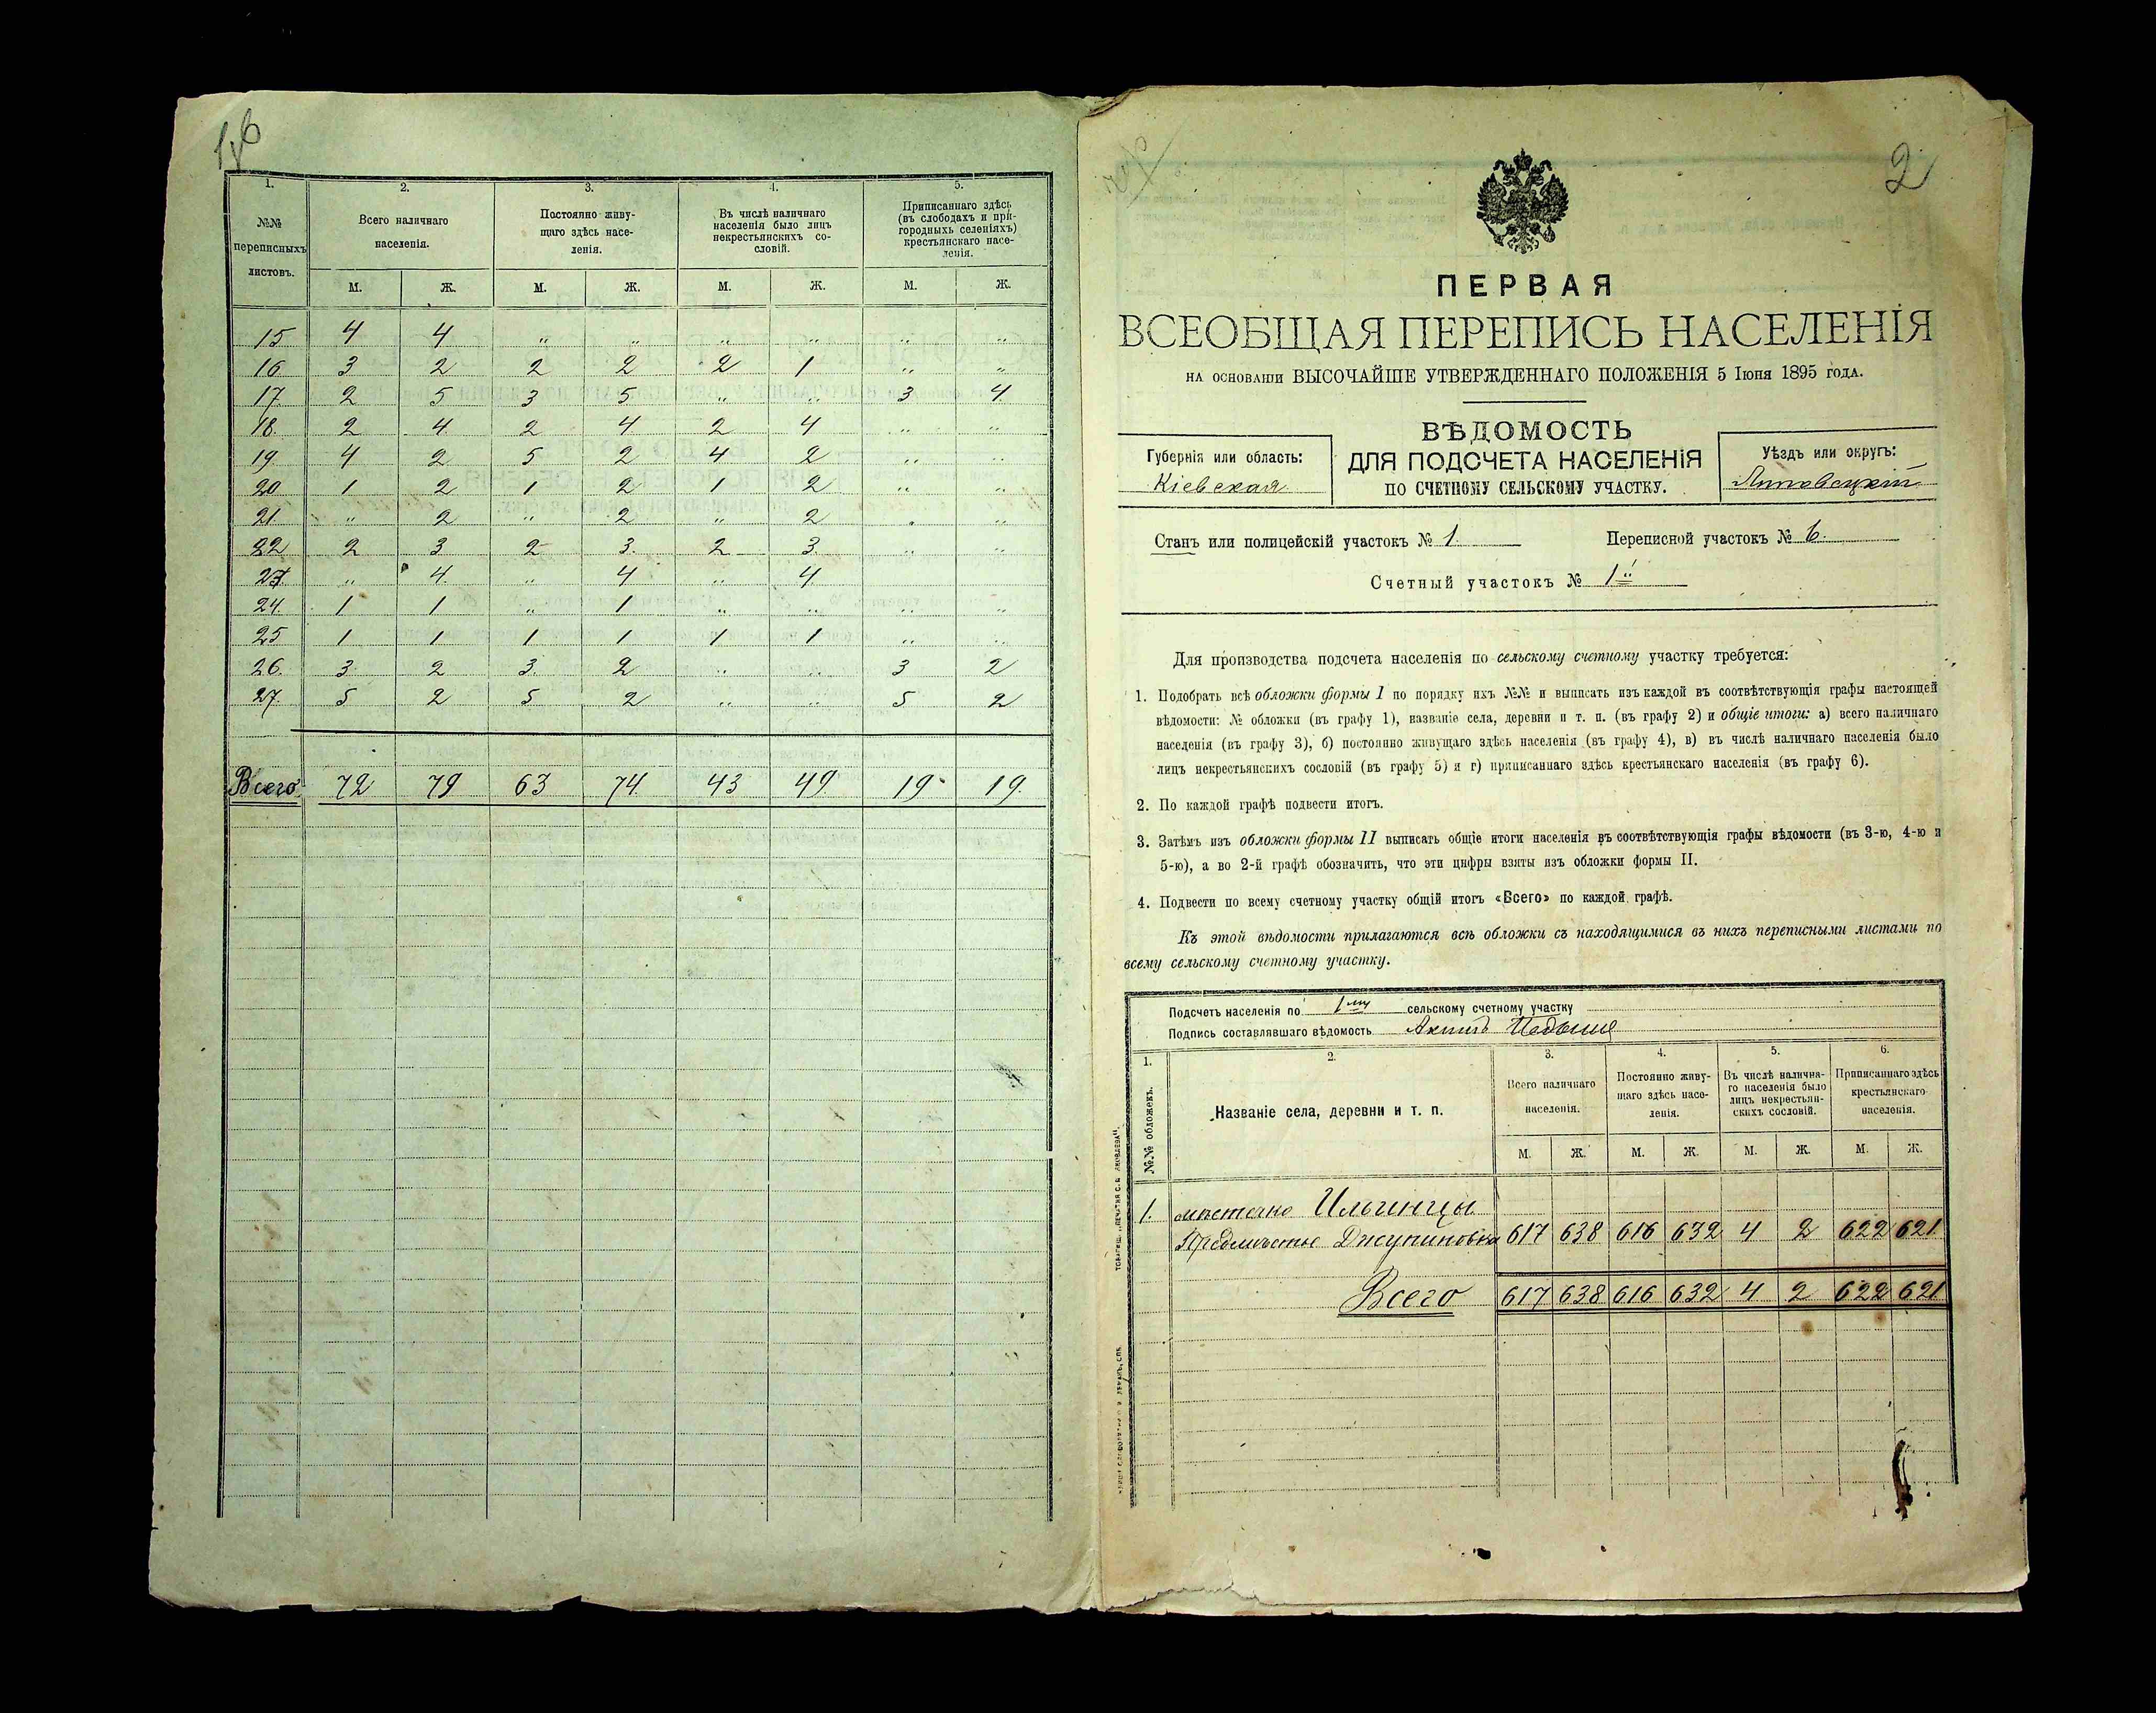 1.
2.
3.
4.
5.
№№
переписныхъ
листовъ.
Всего наличнаго
населенія.
Постоянно живу-
щаго здѣсь насе-
ленія.
Въ числѣ наличнаго
населенія было лицъ
некрестьянскихъ со-
словій.
Приписаннаго здѣсь
(въ слободахъ и при-
городныхъ селеніяхъ)
крестьянскаго насе-
ленія.
М. Ж. М. Ж. М. Ж. М. Ж.
15 4 4 " " " " " "
16 3 2 2 2 2 1 " "
17. 2 5 3 5 " " 3 4
18. 2 4 2 4 2 4 " "
19. 4 2 5 2 4 2 " "
20 1 2 1 2 1 2 " "
21. " 2 " 2 " 2 " "
22 2 3 2 3. 2 3. " "
23. " 4. " 4 " 4.
24. 1 1 " 1 " " " "
25 1 1 1 1 1 1 " "
26. 3. 2 3. 2 " " 3 2
27. 5 2 5 2 " " 5 2
Всего 72 79 63 74. 43 49 19 19.
2
ПЕРВАЯ
ВСЕОБЩАЯ ПЕРЕПИСЬ НАСЕЛЕНІЯ
НА ОСНОВАНІИ ВЫСОЧАЙШЕ УТВЕРЖДЕННАГО ПОЛОЖЕНІЯ 5 Іюня 1895 ГОДА.
ВѢДОМОСТЬ
ДЛЯ ПОДСЧЕТА НАСЕЛЕНІЯ
ПО СЧЕТНОМУ СЕЛЬСКОМУ УЧАСТКУ.
Губернія или область:
Кіевская
Уѣздъ или округъ:
Липовецкій
Станъ или полицейскій участокъ № 1. Переписной участокъ № 6.
Счетный участокъ № 1й
Для производства подсчета населенія по сельскому счетному участку требуется:
1. Подобрать всѣ обложки формы I по порядку ихъ №№ и выписать изъ каждой въ соотвѣтствующія графы настоящей
вѣдомости: № обложки (въ графу 1), названіе села, деревни и т. п. (въ графу 2) и общіе итоги: а) всего наличнаго
населенія (въ графу 3), б) постоянно живущаго здѣсь населенія (въ графу 4), в) въ числѣ наличнаго населенія было
лицъ некрестьянскихъ сословій (въ графу 5) и г) приписаннаго здѣсь крестьянскаго населенія (въ графу 6).
2. По каждой графѣ подвести итогъ.
3. Затѣмъ изъ обложки формы II выписать общіе итоги населенія въ соотвѣтствующія графы вѣдомости (въ 3-ю, 4-ю и
5-ю), а во 2-й графѣ обозначить, что эти цифры взяты изъ обложки формы II.
4. Подвести по всему счетному участку общій итогъ «Всего» по каждой графѣ.
Къ этой вѣдомости прилагаются всѣ обложки съ находящимися въ нихъ переписными листами по
всему сельскому счетному участку.
Подсчетъ населенія по 1му сельскому счетному участку
Подпись составлявшаго вѣдомость
1.
2.
3.
4.
5.
6.
№№ обложекъ.
Названіе села, деревни и т. п.
Всего наличнаго
населенія.
Постоянно живу-
щаго здѣсь насе-
ленія.
Въ числѣ налична-
го населенія было
лицъ некрестьян-
скихъ сословій.
Приписаннаго здѣсь
крестьянскаго
населенія.
М. Ж. М. Ж. М. Ж. М. Ж.
1. мѣстечко Ильинцы
Предмѣстье Джупиновка 617 638 616 632 4 2 622 621
Всего 617 638 616 632 4 2 622 621